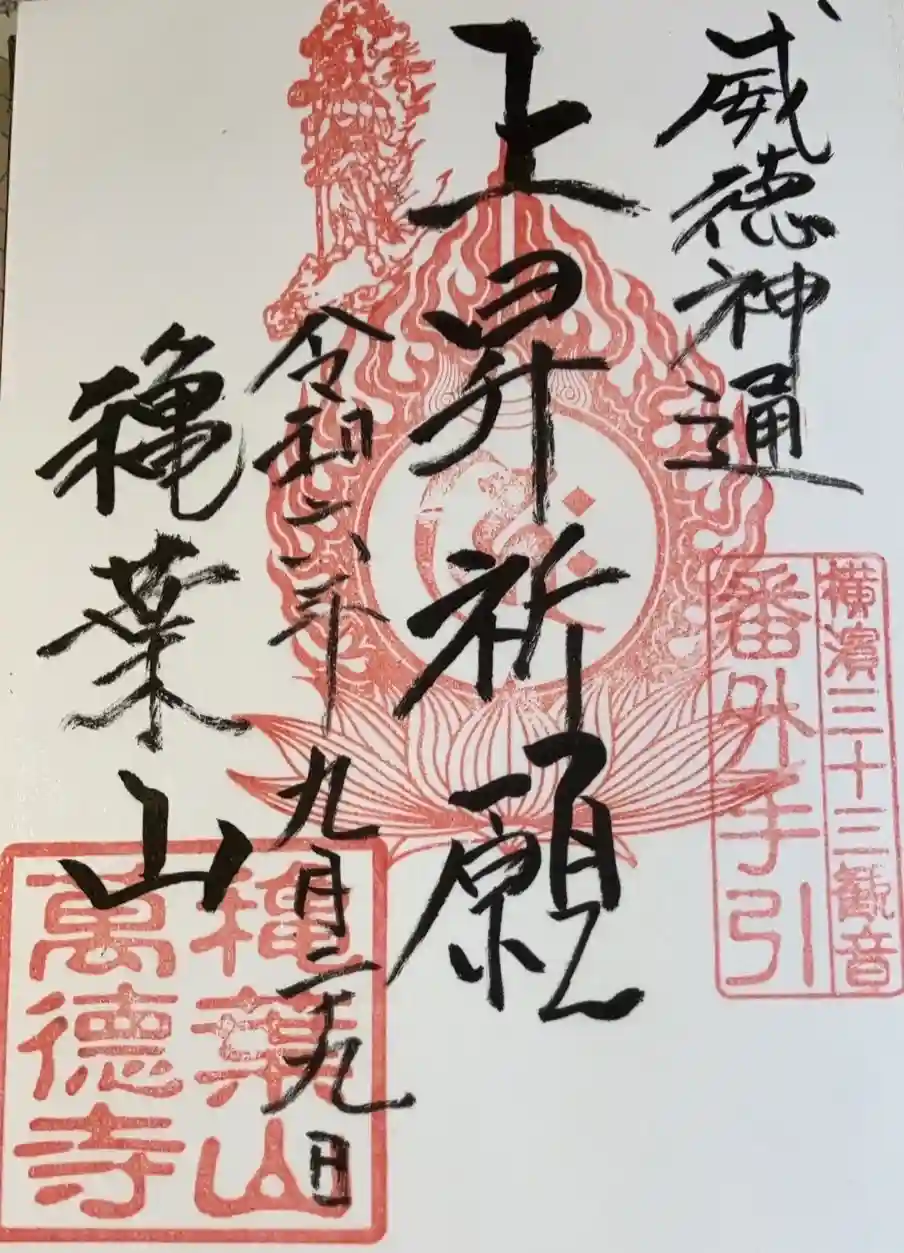 威徳神通
横濱三十三観音
番外手引
上昇祈願
令和六年九月二十九日
穐葉山
穐葉山
萬德寺